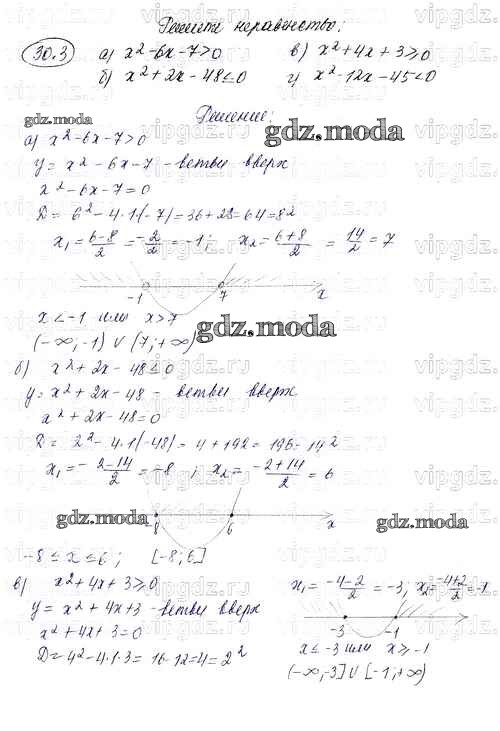 Решите неравенство:
30.3 а) x²-6x-7>0 в) x²+4x+3≥0
б) x²+2x-48≤0 г) x²-12x-45<0
Решение:
gdz.moda
gdz.moda
а) x²-6x-7>0
y = x²-6x-7 - ветви вверх
x²-6x-7=0
D = 6²-4·1·(-7)=36+28=64=8²
x₁= (6-8)/2 = -2/2 = -1; x₂= (6+8)/2 = 14/2 = 7
-1 7 x
x<-1 или x>7
gdz.moda
(-∞;-1) ∪ (7;+∞)
б) x²+2x-48≤0
y= x²+2x-48 - ветви вверх
x²+2x-48=0
D = 2²-4·1(-48)= 4+192= 196= 14²
x₁= -2-14/2 = -8 ; x₂= -2+14/2 = 6
gdz.moda
-8 6 x
gdz.moda
-8 ≤ x ≤ 6 ; [-8;6]
в) x²+4x+3≥0
y = x²+4x+3 - ветви вверх
x²+4x+3=0
D=4²-4·1·3= 16-12=4=2²
x₁= -4-2/2 = -3; x₂= -4+2/2 = -1
-3 -1 x
x ≤ -3 или x ≥ -1
(-∞;-3] ∪ [-1;+∞)